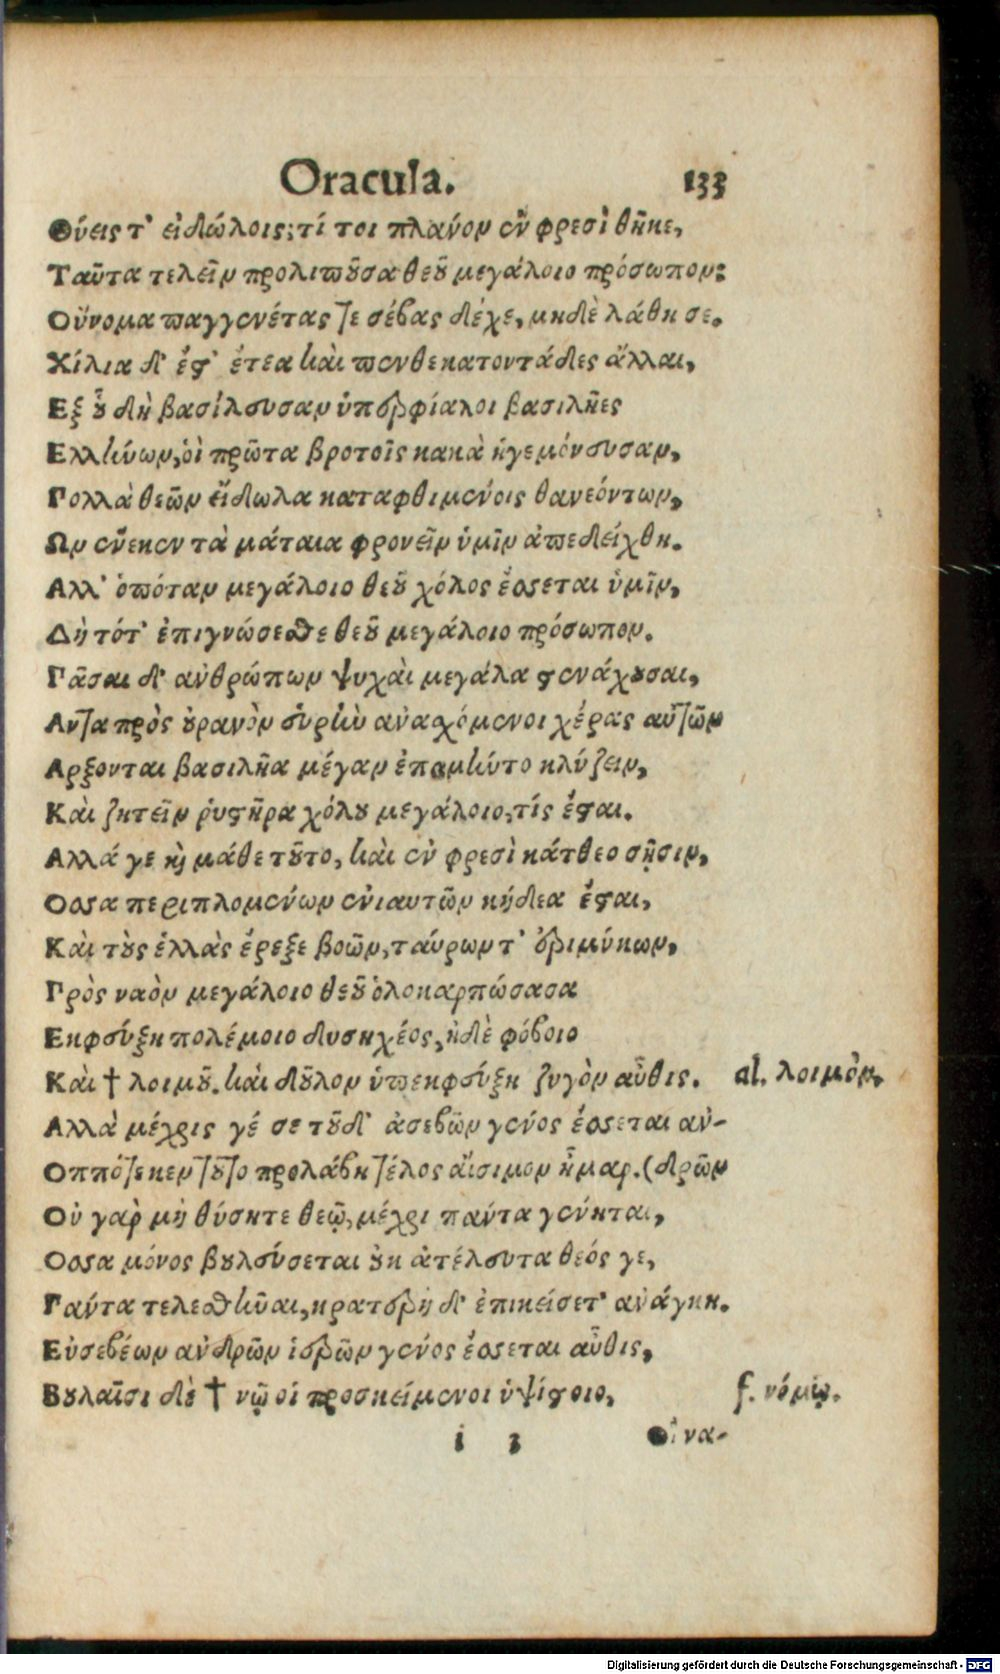 Oracula. 133
Θύεις τ' εἰδώλοις; τί τοι πλάνον ἐν φρεσὶ θῆκε,
Ταῦτα τελεῖν προλιποῦσα θεοῦ μεγάλοιο πρόσωπον;
Οὔνομα παγγενέταο σέβας δ' ἔχε, μηδὲ λάθη σε.
Χίλια δ' ἔστ' ἔτεα καὶ πένθ' ἑκατοντάδες ἄλλαι,
Εξ οὗ δὴ βασίλευσαν ὑπερφίαλοι βασιλῆες
Ελλήνων, οἱ πρῶτα βροτοῖς κακὰ ἡγεμόνευσαν,
Πολλὰ θεῶν εἴδωλα καταφθιμένοις θανεόντων,
Ων ἕνεκεν τὰ μάταια φρονεῖν ὑμῖν ἀπεδείχθη.
Αλλ' ὁπόταν μεγάλοιο θεοῦ χόλος ἔσσεται ὑμῖν,
Δὴ τότ' ἐπιγνώσεσθε θεοῦ μεγάλοιο πρόσωπον.
Πᾶσαι δ' ἀνθρώπων ψυχαὶ μεγάλα στενάχουσαι,
Αντα πρὸς οὐρανὸν εὐρὺν ἀνασχόμενοι χέρας αὐτῶν
Αρξονται βασιλῆα μέγαν ἐπαμύντο κλύζειν,
Καὶ ζητεῖν ῥυστῆρα χόλου μεγάλοιο, τίς ἔσται.
Αλλά γε καὶ μάθε τοῦτο, καὶ ἐν φρεσὶ κάτθεο σῇσιν,
Οσσα περιπλομένων ἐνιαυτῶν κήδεα ἔσται,
Καὶ τοὺς ἑλλὰς ἔρεξε βοῶν, ταύρων τ' ἐριμύκων,
Πρὸς ναὸν μεγάλοιο θεοῦ ὁλοκαρπώσασα
Εκφεύξῃ πολέμοιο δυσηχέος, ἠδὲ φόβοιο
Καὶ † λοιμοῦ. καὶ δοῦλον ὑπεκφεύξῃ ζυγὸν αὖθις. al. λοιμὸν,
Αλλὰ μέχρις γέ σε τοῦδ' ἀσεβῶν γένος ἔσσεται ἀν-
Οππότε κεν τοῦτο προλάβῃ τέλος αἴσιμον ἦμαρ. (δρῶν
Οὐ γὰρ μὴ θύσητε θεῷ, μέχρι πάντα γένηται,
Οσσα μόνος βουλεύσεται οὐκ ἀτέλευτα θεός γε,
Πάντα τελεσθῆναι, κρατερὴ δ' ἐπικείσετ' ἀνάγκη.
Εὐσεβέων ἀνδρῶν ἱερῶν γένος ἔσσεται αὖθις,
Βουλαῖσι δὲ † νῷ οἱ προσκείμενοι ὑψίστοιο, f. νόμῳ.
i 3 Οἱ να-